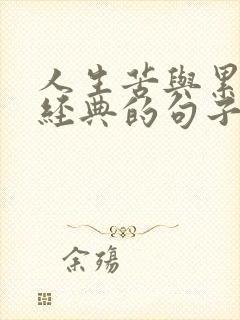 人生苦與累
經典的句子
余殤